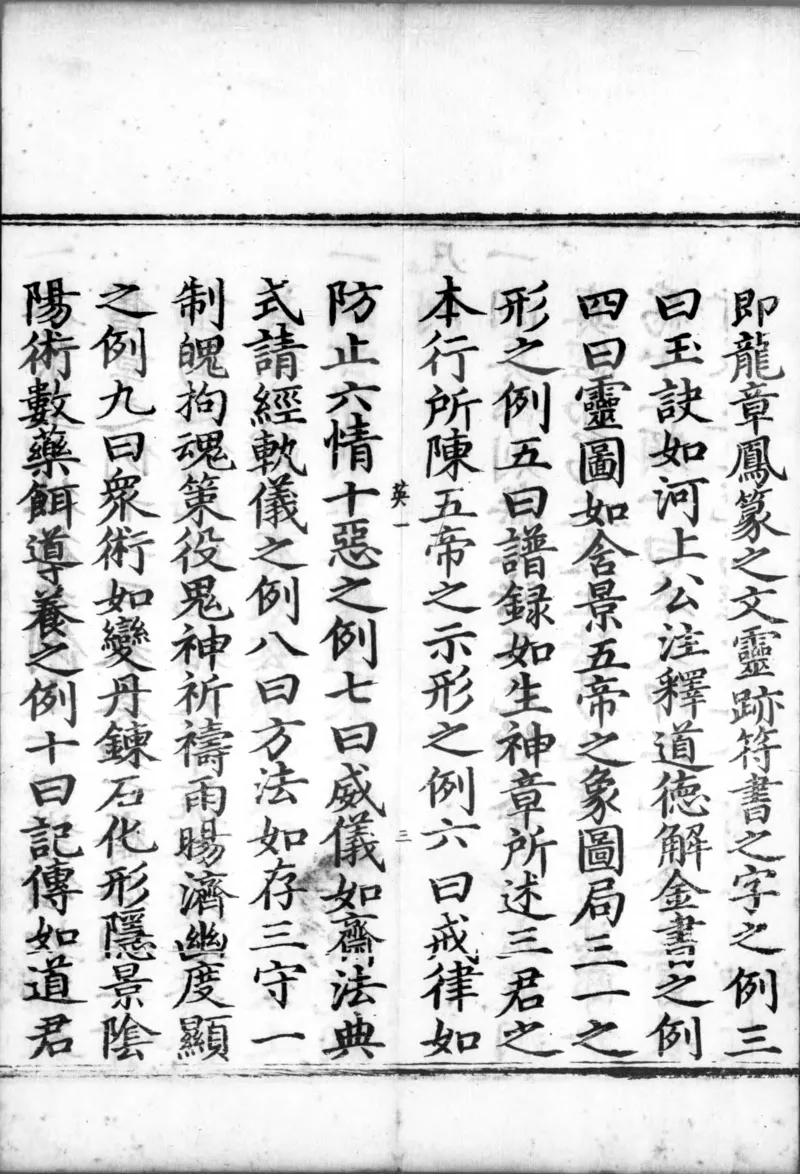 即龍章鳳篆之文靈跡符書之字之例三
曰玉訣如河上公注釋道德解金書之例
四曰靈圖如含景五帝之象圖局三一之
形之例五曰譜録如生神章所述三君之
本行所陳五帝之示形之例六曰戒律如
英一
三
防止六情十惡之例七曰威儀如齋法典
式請經軌儀之例八曰方法如存三守一
制魄拘魂策役鬼神祈禱雨暘濟幽度顯
之例九曰衆術如變丹鍊石化形隱景陰
陽術數藥餌導養之例十曰記傳如道君